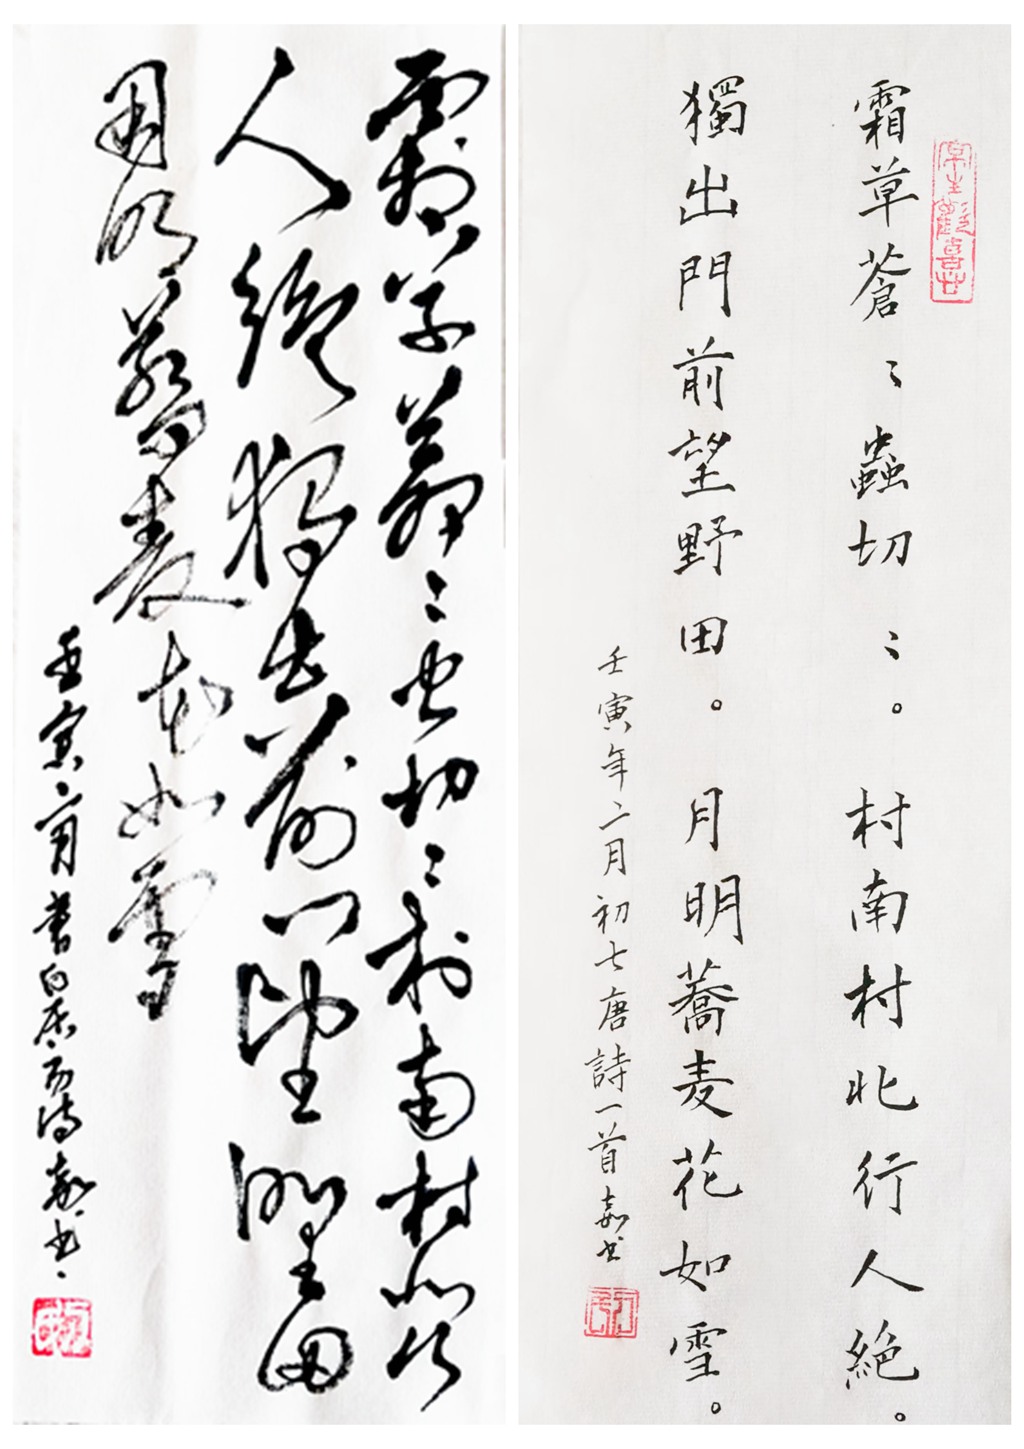 霜草蒼〻虫切〻村南村北行
人絶獨出前門望野田
月明蕎麦花如雪
壬寅二月書白居易詩嘉書
霜草蒼〻蟲切〻。村南村北行人絶。
獨出門前望野田。月明蕎麦花如雪。
壬寅年二月初七唐詩一首嘉书